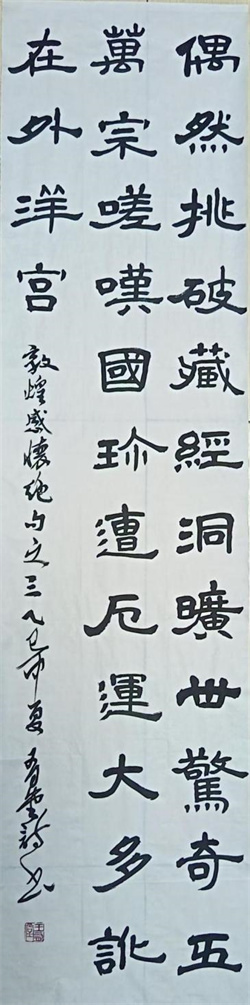 偶然挑破藏經洞曠世驚奇五
萬宗嗟嘆國珍遭厄運大多訛
在外洋宫
敦煌感懷絶句之三乙巳中夏